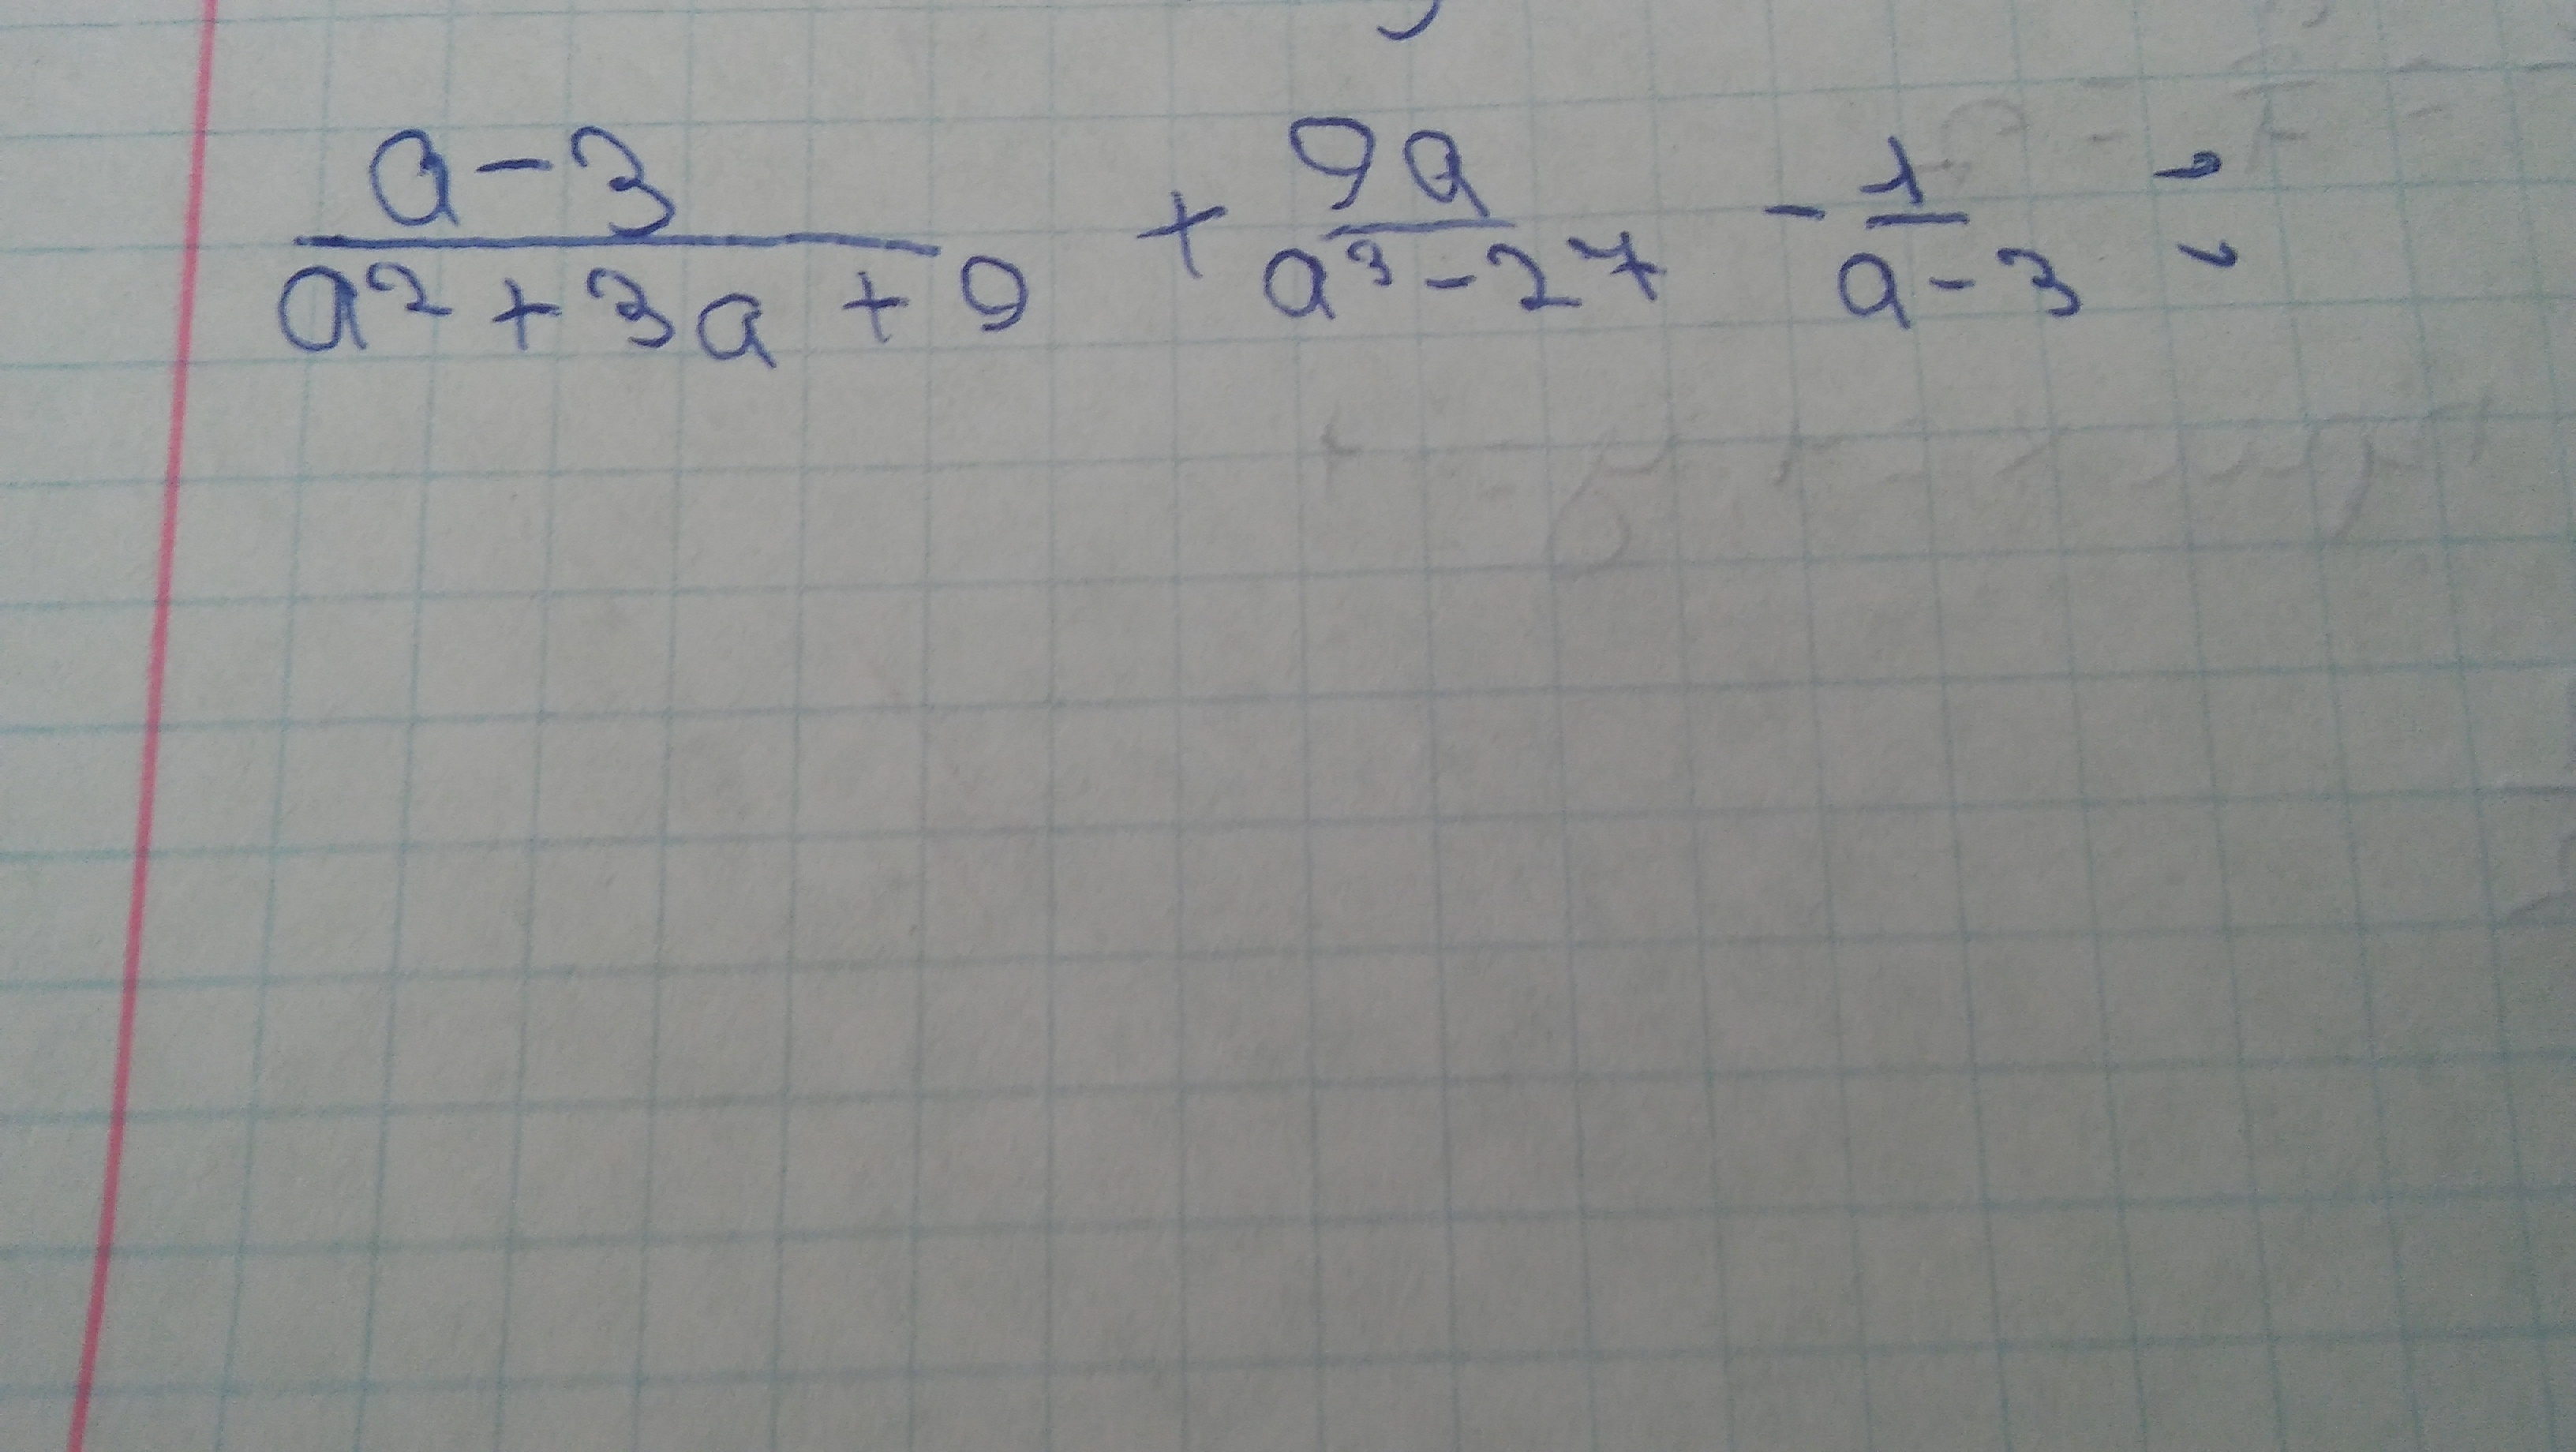 a-3 / a²+3a+9 + 9a / a³-27 - 1 / a-3 =